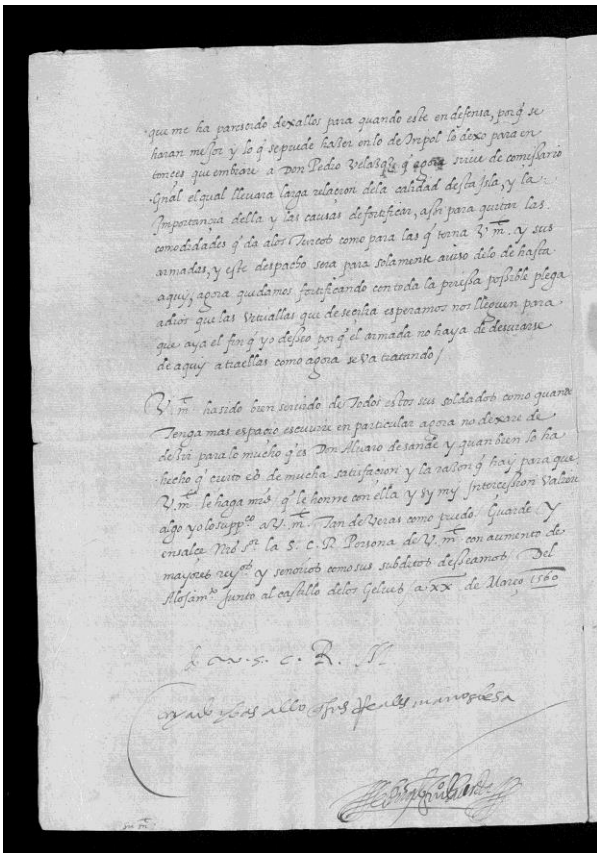 que me ha parescido dexallos para quando este en defensa, porq̃ se
haran mejor y lo q̃ se puede hazer en lo de Tripol lo dexo para en
tonces que embiare a Don Pedro Velasq̃z q̃ agora sirue de comissario
General el qual lleuara larga relacion dela calidad desta Isla, y la
Importanzia della y las causas de fortificar, assi para quitar las
comodidades q̃ da alos Turcos como para las q̃ terna V. m̃t. y sus
armadas, y este despacho sera para solamente auiso delo de hasta
aquy, agora quedamos fortificando con toda la priessa possible plega
adios que las Vetuallas que de secilia esperamos nos lleguen para
que aya el fin q̃ yo desseo porq̃ el armada no haya de desuiarse
de aquy a traellas como agora se va tratando /
V. m̃t. ha sido bien seruido de Todos estos sus soldados como quando
Tenga mas espacio escriuire en particular agora no dexare de
dezir para lo mucho q̃ es Don Aluaro de sande y quan bien lo ha
hecho q̃ cierto es de mucha satisfacion y la razon q̃ hay para que
V. m̃t. le haga mrd̃ q̃ le honrre con ella y sy my Intercession valiere
algo yo lo supp.co a V. m̃t. Tan de Veras como puedo / Guarde / y
ensalce Nro s.or la S. C. R. Persona de V. m̃t. con aumento de
mayores rey.os y senorios como sus subditos desseamos / Del
Alojam.to Junto al castillo delos Gelues / a XX de Março 1560
S. C. R. M.
Criado y basallo de sus Reales manos besa
su m̃t.